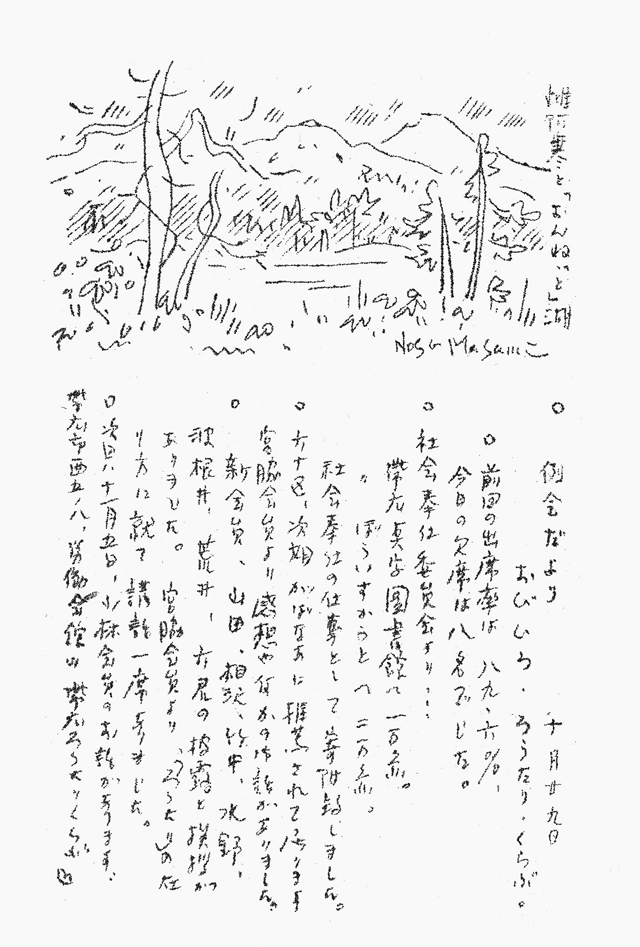 雌阿寒とおんねとう湖
Nosa Masami
○ 例会だより 十月廿九日
おびひろ・ろうたり・くらぶ。
○ 前回の出席率は 八九、六%、
今日の欠席は八名でした。
○ 社会奉仕委員会より…
帯広点字圖書館へ 一万乄。
〃 ぼういすかうとへ 二万乄。
社会奉仕の仕事として寄附致しました。
○ 六十区、次期がばなあに推薦されて居ります
宮脇会員より感想や何かの御話がありました。
○ 新会員、山田、相沢、竹中、水野、
波根井、荒井、六君の披露と挨拶が
ありました。 宮脇会員より、ろうたりの在
り方に就て 講話一席ありました。
○ 次回八十一月五日、小林会員のお話があります。
帯広市西五ノ八、労働会館内 帯広ろうたりくらぶ